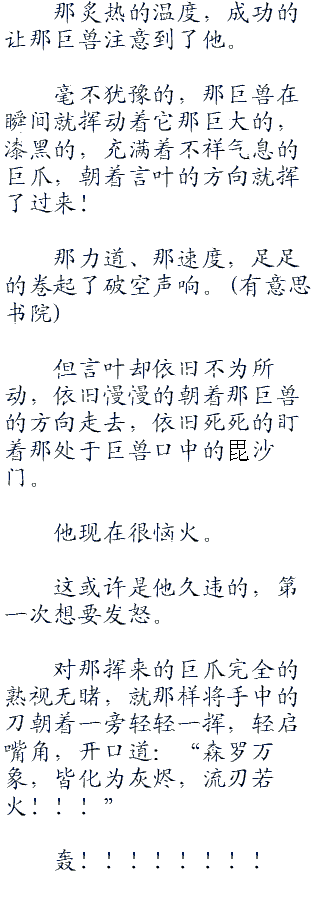 那炙热的温度，成功的
让那巨兽注意到了他。
毫不犹豫的，那巨兽在
瞬间就挥动着它那巨大的，
漆黑的，充满着不祥气息的
巨爪，朝着言叶的方向就挥
了过来！
那力道、那速度，足足
的卷起了破空声响。(有意思
书院)
但言叶却依旧不为所
动，依旧慢慢的朝着那巨兽
的方向走去，依旧死死的盯
着那处于巨兽口中的毘沙
门。
他现在很恼火。
这或许是他久违的，第
一次想要发怒。
对那挥来的巨爪完全的
熟视无睹，就那样将手中的
刀朝着一旁轻轻一挥，轻启
嘴角，开口道：“森罗万
象，皆化为灰烬，流刃若
火！！！”
轰！！！！！！！！